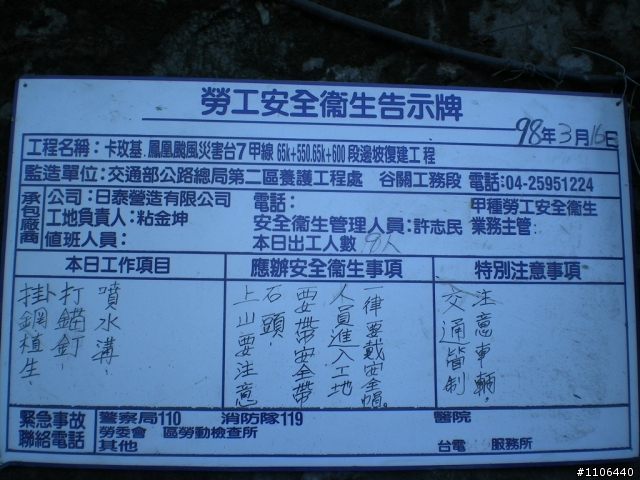 勞工安全衞生告示牌
98年3月16日
工程名稱：卡玫基.鳳凰颱風災害台7甲線 65k+550.65k+600 段邊坡復建工程
監造單位：交通部公路總局第二區養護工程處 谷關工務段 電話：04-25951224
承包廠商
公司：日泰營造有限公司 電話： 甲種勞工安全衞生
工地負責人：粘金坤 安全衞生管理人員：許志民 業務主管：
值班人員： 本日出工人數 9人
本日工作項目 應辦安全衞生事項 特別注意事項
噴水溝、
打錨釘、
掛鋼植生、
一律要戴安全帽。
人員進入工地
要帶安全帶
石頭
上山要注意
注意車輛，
交通管制
緊急事故聯絡電話
警察局110 消防隊119 醫院
勞委會 區勞動檢查所
其他 台電 服務所
#1106440